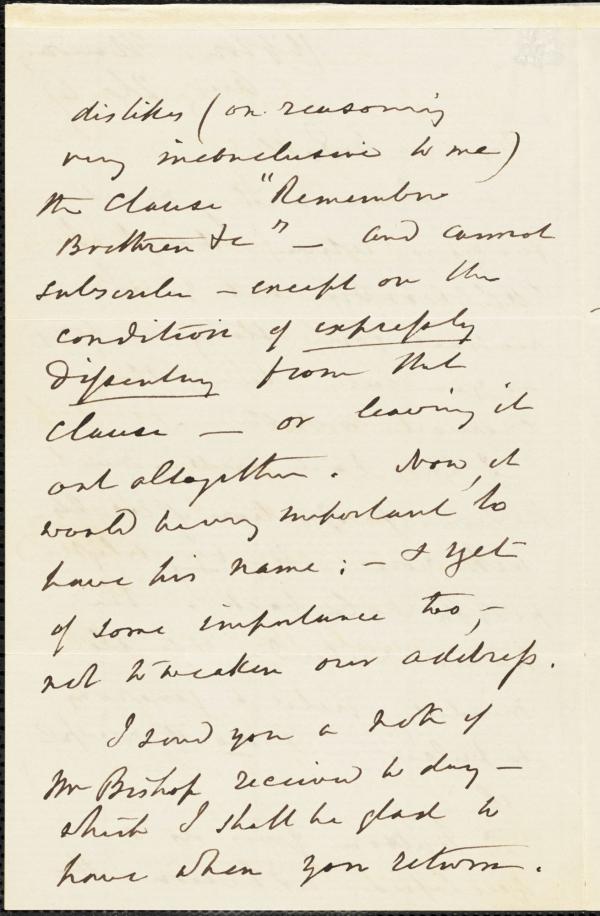 dislikes (on reasoning
very inconclusive to me)
the clause "Remember
Brethren &c" — and cannot
subscribe — except on the
condition of expressly
dissenting from that
clause — or leaving it
out altogether. Now, it
would be very important to
have his name; — & yet
of some importance too, —
not to weaken our address.
I send you a note of
Mr Bishop received to day —
which I shall be glad to
have when you return.